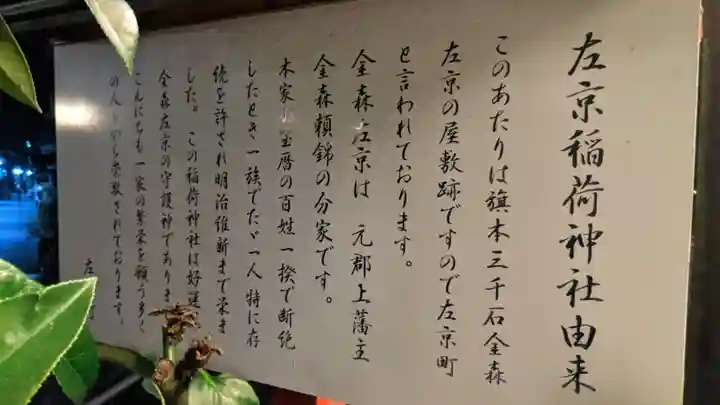 左京稲荷神社由来
このあたりは旗本三千石金森
左京の屋敷跡ですので左京町
と言われております。
金森左京は 元郡上藩主
金森頼錦の分家です。
本家が宝暦の百姓一揆で断絶
したとき一族でたゞ一人特に存
続を許され明治維新まで栄ま
した。この稲荷神社は好運
金森左京の守護神であります
こんにちも一家の繁栄を願う多く
の人々から崇敬されております。
左 町